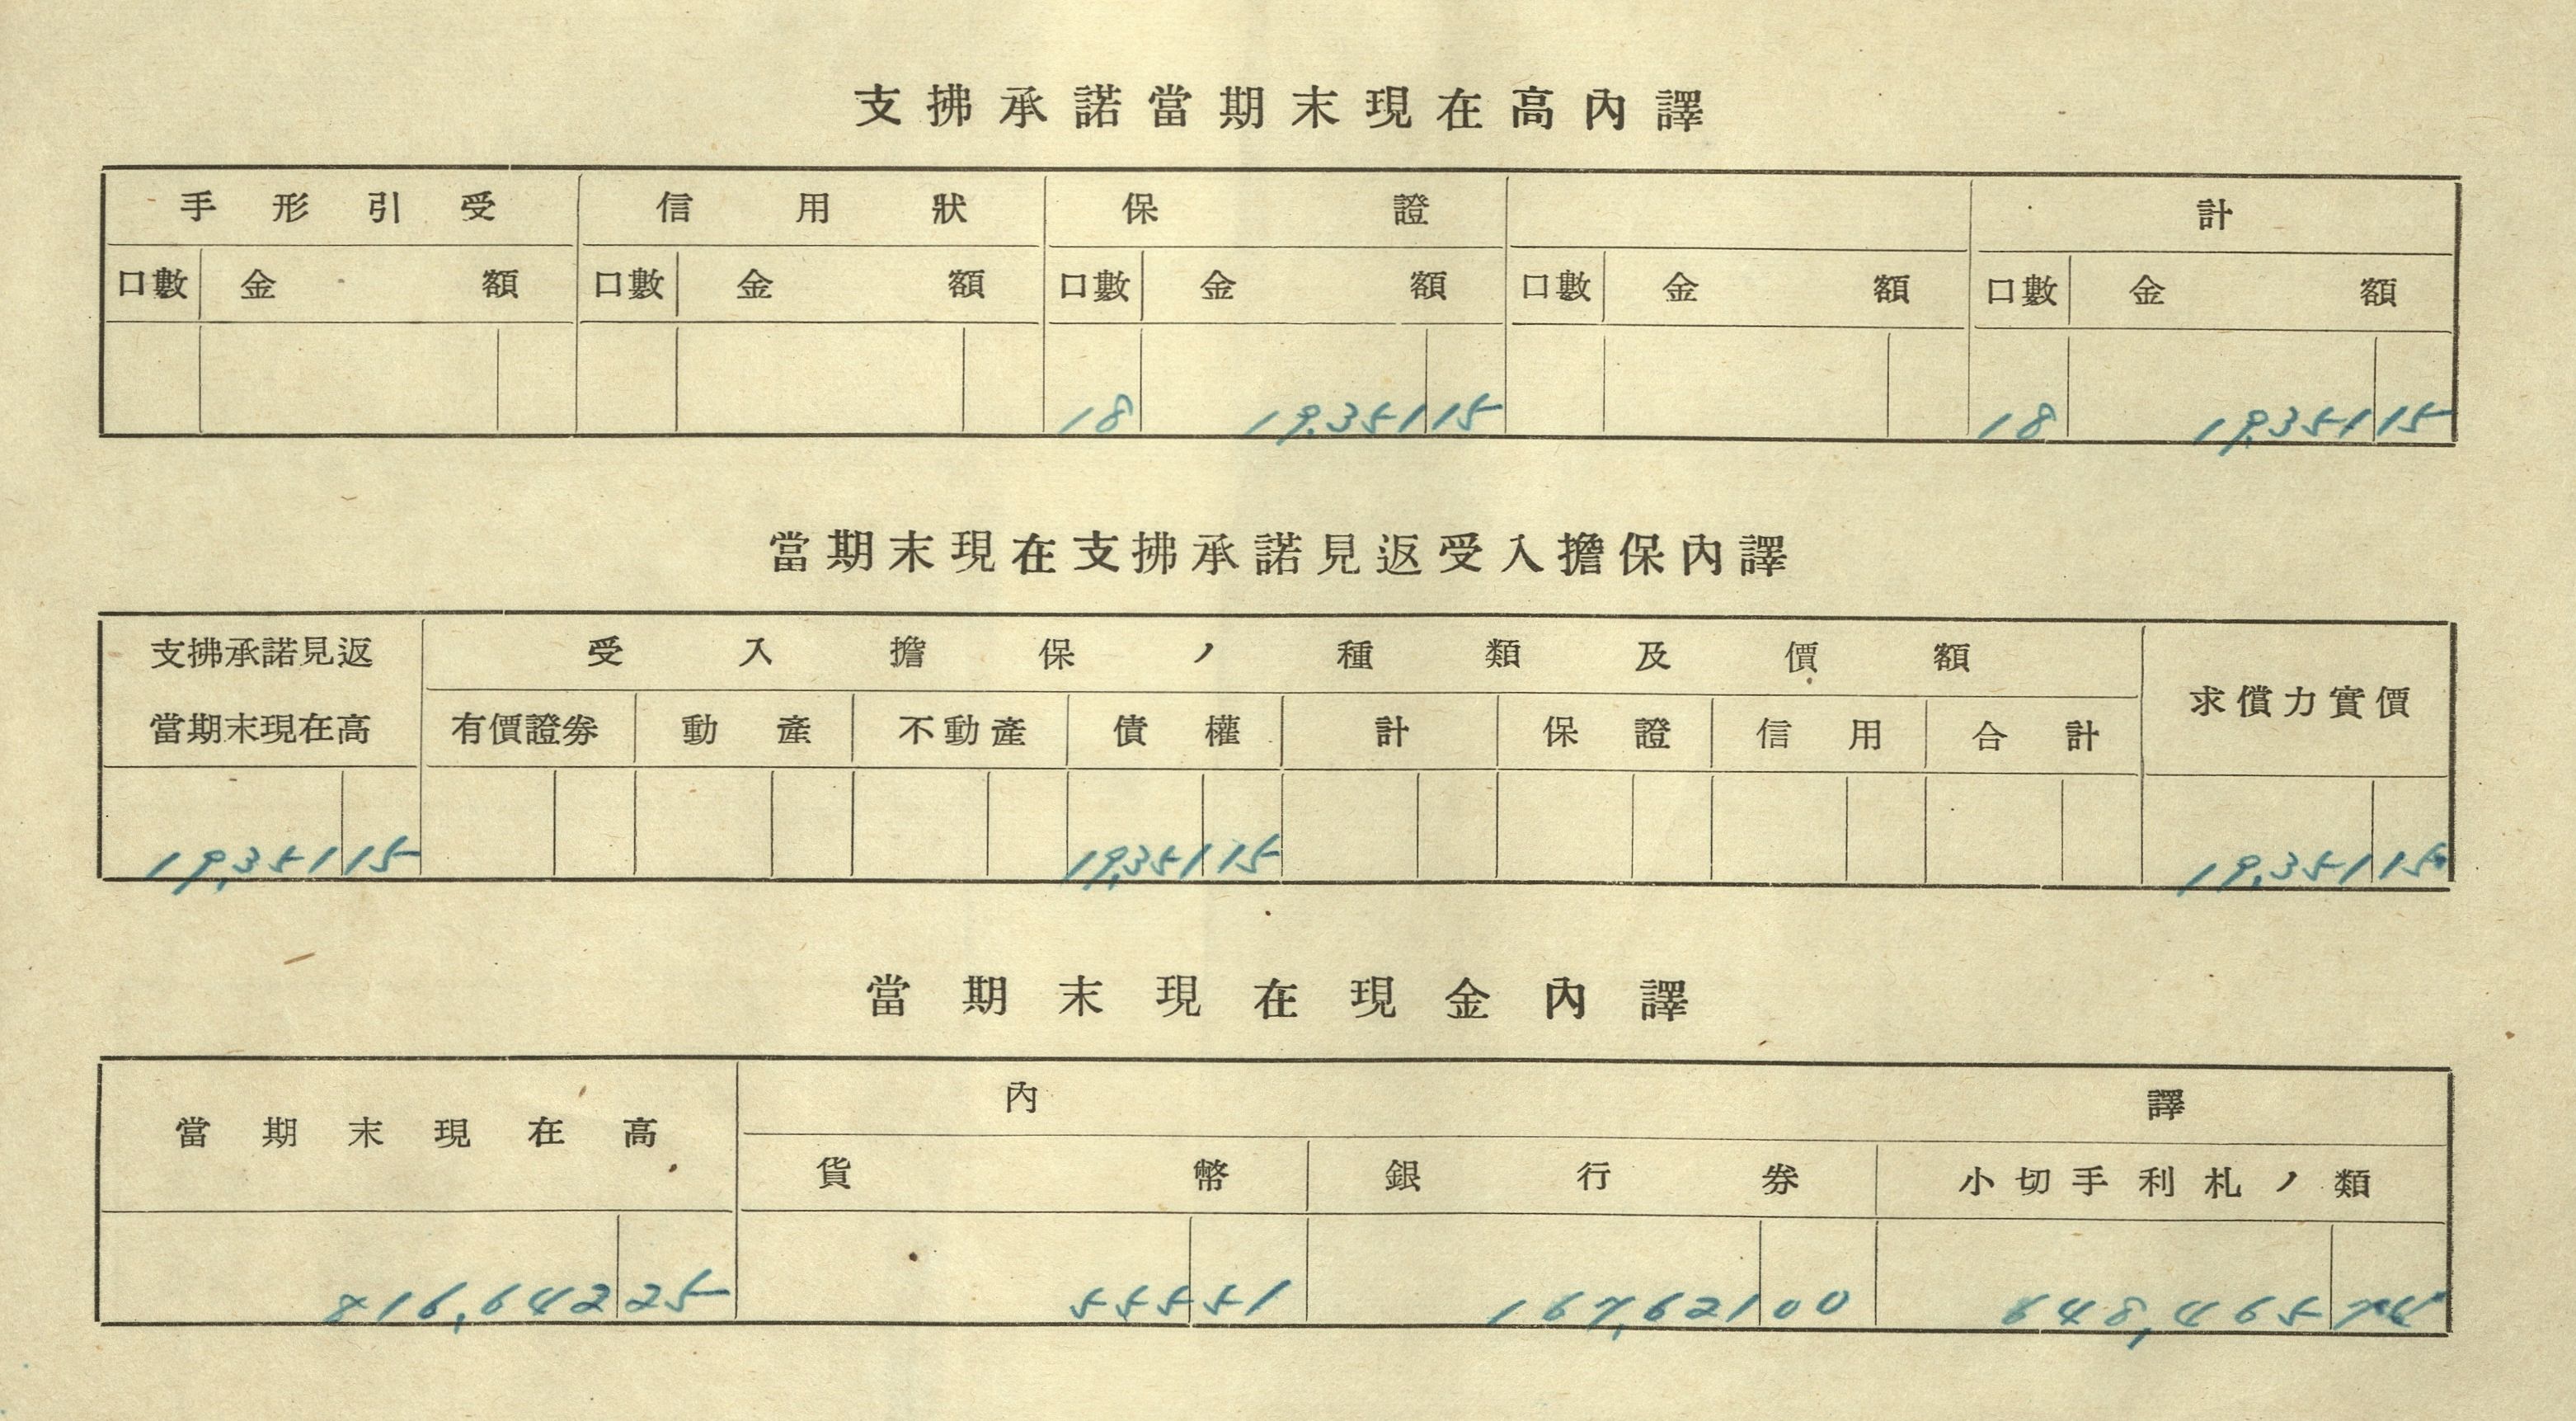 支拂承諾當期末現在高內譯
手形引受 信用狀 保證 計
口數 金額 口數 金額 口數 金額 口數 金額 口數 金額
18 19,351 15 18 19,351 15
當期末現在支拂承諾見返受入擔保內譯
支拂承諾見返 受入擔保ノ種類及價額 求償力實價
當期末現在高 有價證劵 動產 不動產 債權 計 保證 信用 合計
19,351 15 19,351 15 19,351 15
當期末現在現金內譯
當期末現在高 內譯
貨幣 銀行券 小切手利札ノ類
816,642 25 555 51 167,621 00 648,465 74